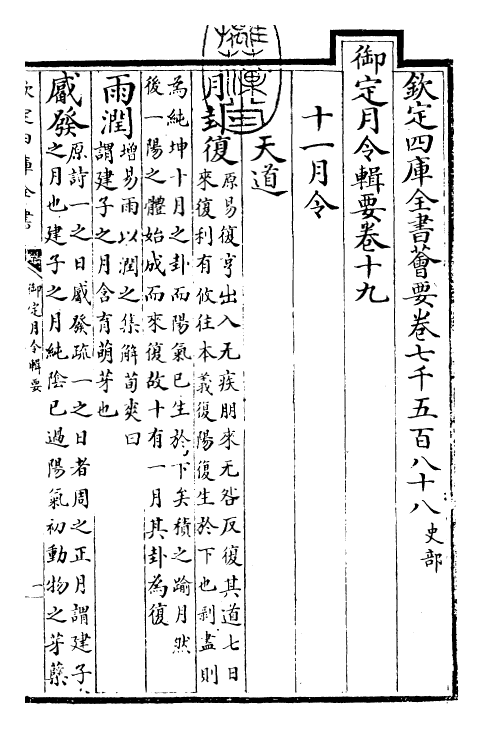 欽定四庫全書薈要卷七千五百八十八 史部
御定月令輯要卷十九
十一月令
天道
月卦復 原易復亨出入无疾朋來无咎反復其道七日
來復利有攸往本義復陽復生於下也剥盡則
為純坤十月之卦而陽氣已生於下矣積之踰月然
後一陽之體始成而來復故十有一月其卦為復
雨潤 增易雨以潤之集解荀爽曰
謂建子之月含育萌芽也
觱發 原詩一之日觱發疏一之日者周之正月謂建子
之月也建子之月純陰已過陽氣初動物之芽蘖
欽定四庫全書
御定月令輯要
一